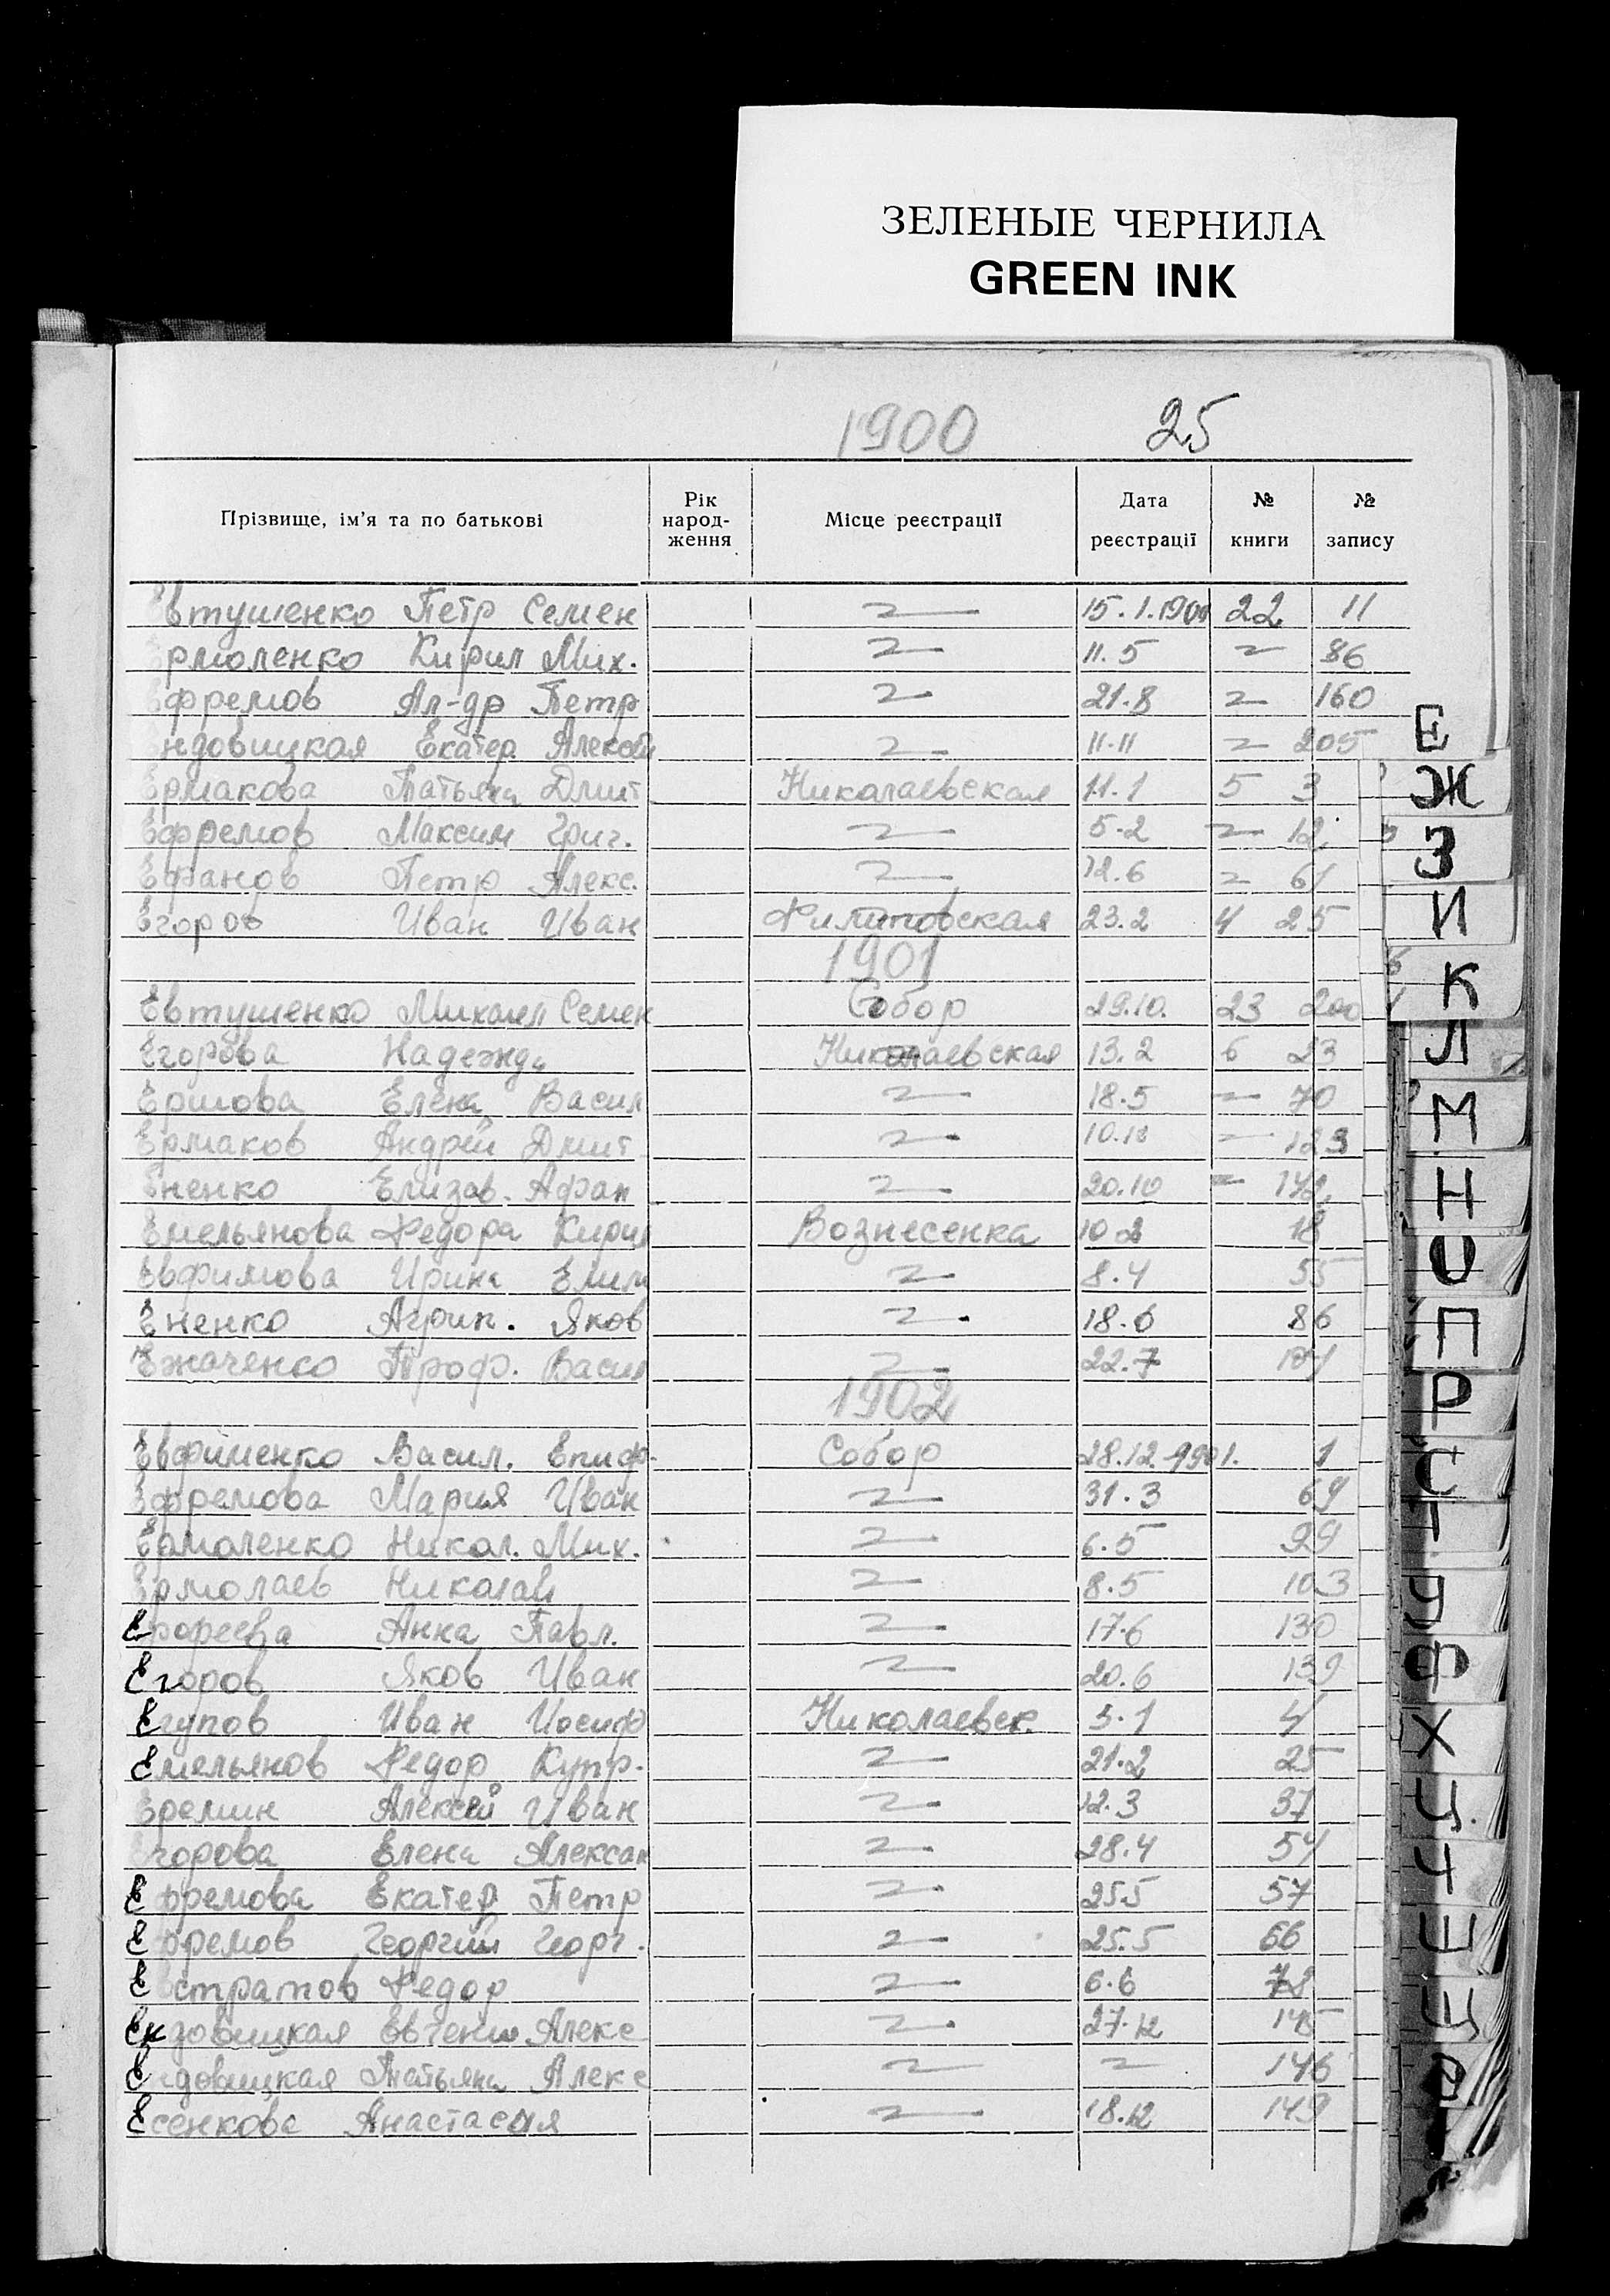 ЗЕЛЕНЫЕ ЧЕРНИЛА
GREEN INK
1900 25
Прізвище, ім'я та по батькові Рік народ- ження Місце реєстрації Дата реєстрації № книги № запису
Евтушенко Петр Семен 15.1.1900 22 11
Ермоленко Кирил Мих. 11.5 86
Ефремов Ал-др Петр 21.8 160
Ендовицкая Екатер. Алексе 11.11 205
Ермакова Татьяна Дмит 11.1 5 3
Николаевская
Ефремов Максим Григ. 5.2 12
Ефанов Петр Алекс. 12.6 61
Егоров Иван Иван Филиповская 23.2 4 25
1901
Евтушенко Михаил Семен Собор 29.10. 23 200
Егорова Надежда Николаевская 13.2 6 23
Ершова Елена Васил 18.5 70
Ермаков Андрей Дмит 123
Ененко Елизав. Афан 20.10
Емельянова Федора Кирил Вознесенка 10.2 18
Евфимова Ирина 8.4 55
Ененко Агрип. Яков 18.6 86
Троф. Васил 22.7
1902
Евфименко Васил. Епиф. Собор 28.12.1901. 1
Ефремова Мария Иван 31.3 69
Ермоленко Никол. Мих. 6.5 99
Ермолаев Николай 8.5 103
Ерофеева Анна Павл. 17.6 130
Егоров Яков Иван 20.6 139
Егупов Иван Иосиф Николаевск. 3.1 4
Емельянов Федор Купр. 21.2 25
Еремин Алексей Иван 12.3 37
Егорова Елена Алексан 28.4 54
Ефремова Екатер Петр 25.5 57
Ефремов Георгий Георг. 25.5 66
Евстратов Федор 6.6 78
Ендовицкая Евгения Алекс 27.12 145
Ендовицкая Татьяна Алекс 146
Есенкова Анастасия 18.12 149
Е
Ж
З
И
К
Л
М
Н
О
П
Р
С
Т
У
Ф
Х
Ц
Ч
Ш
Щ